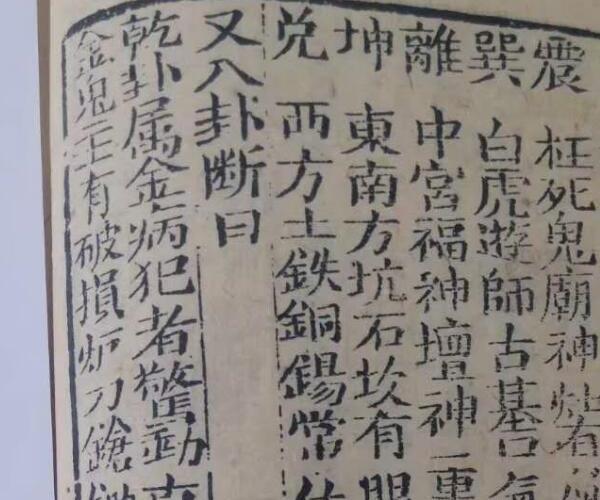 震 枉死鬼廟神
巽 白虎遊師古墓
離 中宮福神壇神
坤 東南方坑石坎有眼
兌 西方土鉄銅錫常
又八卦断曰
乾卦属金病犯者驚動
金鬼主有破損炉刀鎗